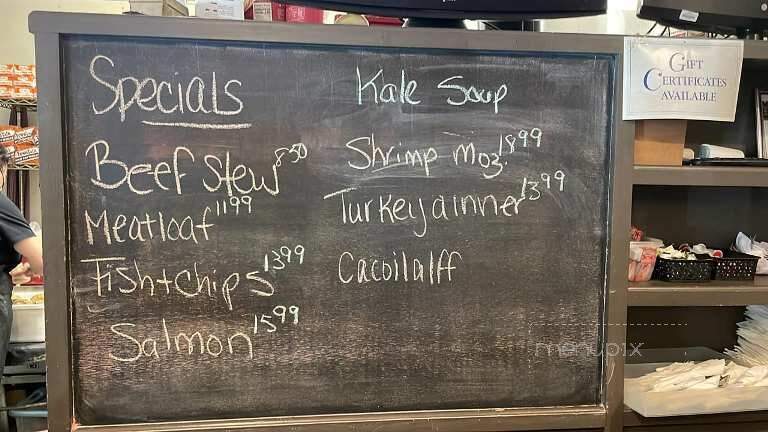 Specials
Beef Stew 8.50
Meatloaf 11.99
Fish+Chips 13.99
Salmon 15.99
Kale Soup
Shrimp Moz. 18.99
Turkey dinner 13.99
Cacoila
GIFT
CERTIFICATES
AVAILABLE
menupix